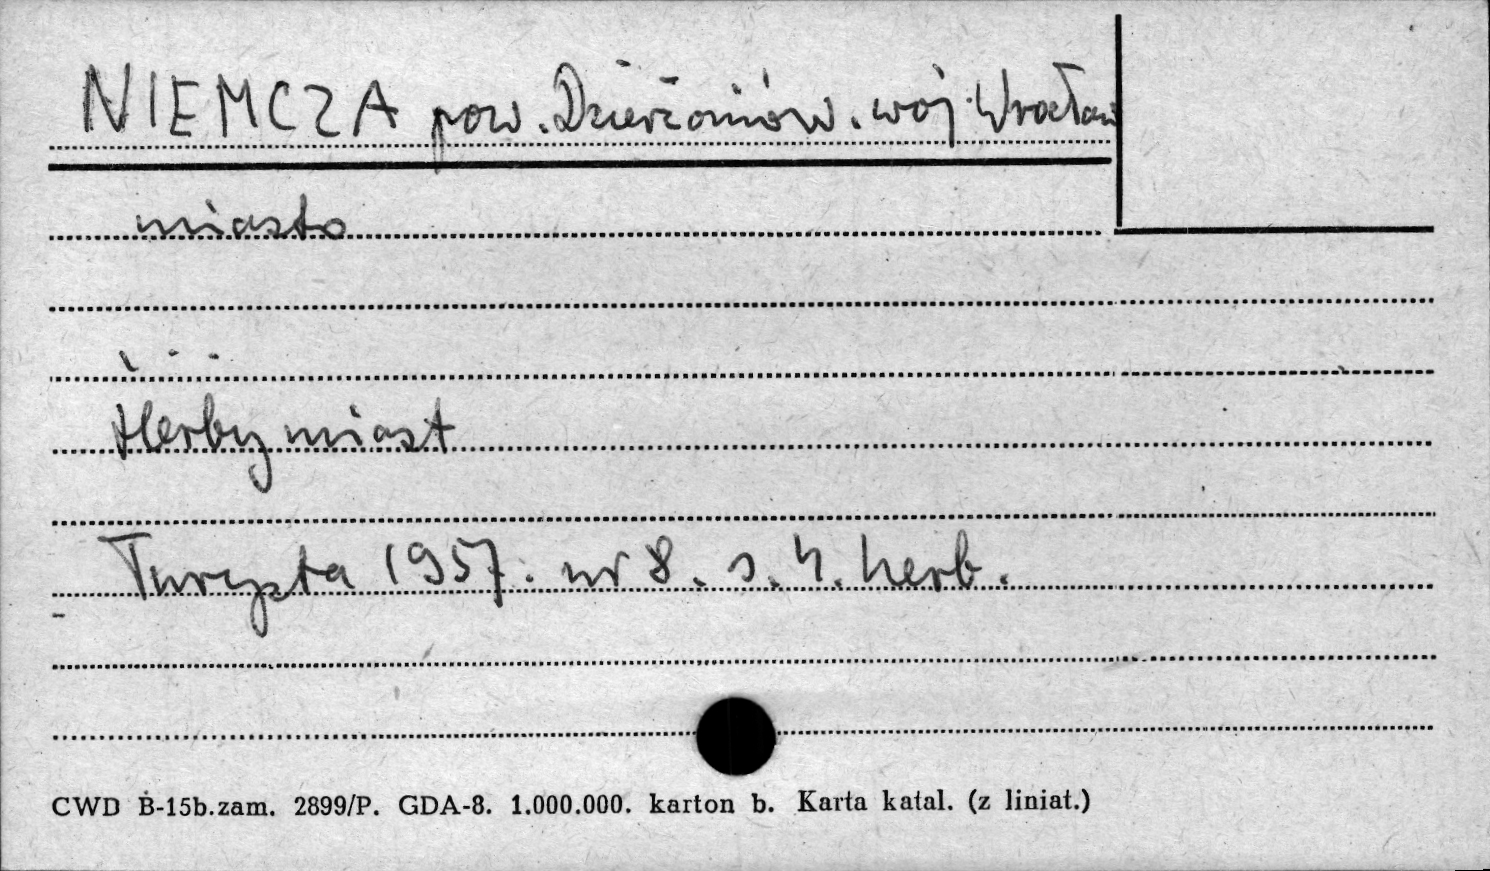 NIEMCZA pow. Dzierżoniów. woj. Wrocław
miasto
Herby miast
Turysta 1957. nr 8. s. 4. herb.
CWD B-15b.zam. 2899/P. GDA-8. 1.000.000. karton b. Karta katal. (z liniat.)